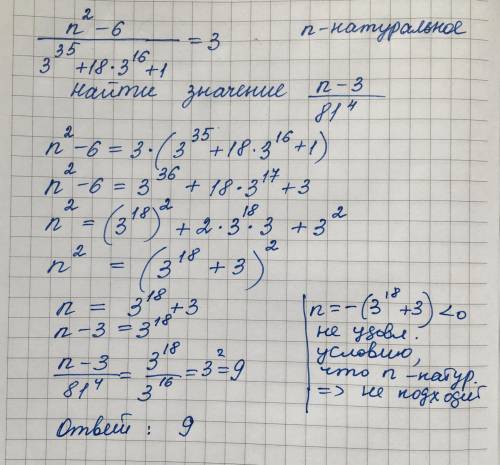 (n² - 6) / (3³⁵ + 18·3¹⁶ + 1) = 3    n - натуральное
найти значение (n - 3) / 81⁴
n² - 6 = 3·(3³⁵ + 18·3¹⁶ + 1)
n² - 6 = 3³⁶ + 18·3¹⁷ + 3
n² = (3¹⁸)² + 2·3¹⁸·3 + 3²
n² = (3¹⁸ + 3)²
n = 3¹⁸ + 3
n - 3 = 3¹⁸
(n - 3) / 81⁴ = 3¹⁸ / 3¹⁶ = 3² = 9
Ответ: 9
n = -(3¹⁸ + 3) < 0
не удовл.
условию,
что n - натур.
=> не подходит